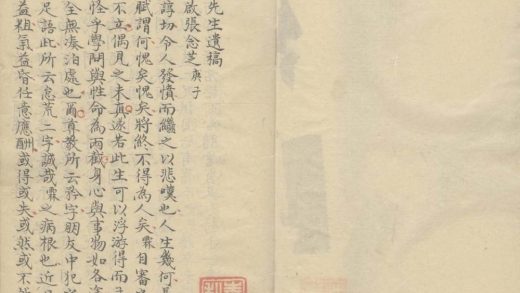 先生遺稿
啟張念芝庚子
諄切令人發憤而繼之以悲嘆也人生幾何
賦謂何愧矣愧矣將終不得為人矣霖自審
不立偶見之未真遂若此生可以浮游得而
怪乎學問與性命為兩截身心與事物如各
全無湊泊處也爾尊教所云矜字朋友中犯
足語此所云怠荒二字誠哉霖之病根也近
益粗氣益昏任意應酬或得或失或然或不